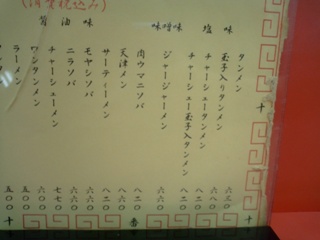 (消費税込み)
塩味
タンメン 六三〇
玉子入りタンメン 六八〇
チャーシュータンメン 八二〇
チャーシュー玉子入タンメン
味噌味
ジャージャーメン 六六〇
醤油味
肉ウマニソバ 八二〇
天津メン 八六〇
サーティーメン 八二〇
モヤシソバ 六六〇
ニラソバ 六六〇
チャーシューメン 七七〇
ワンタンメン 六〇〇
ラーメン 五〇〇